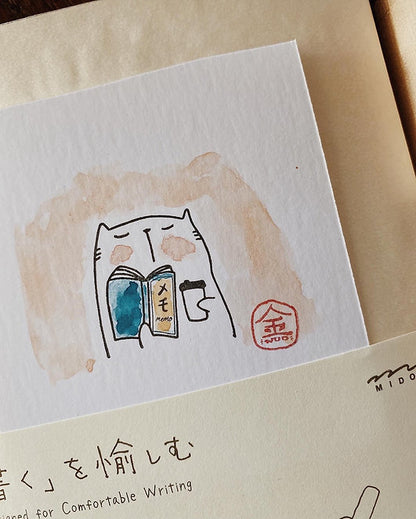 メモ
MEMO
金
MIDO
書く」を愉しむ
igned for Comfortable Writing